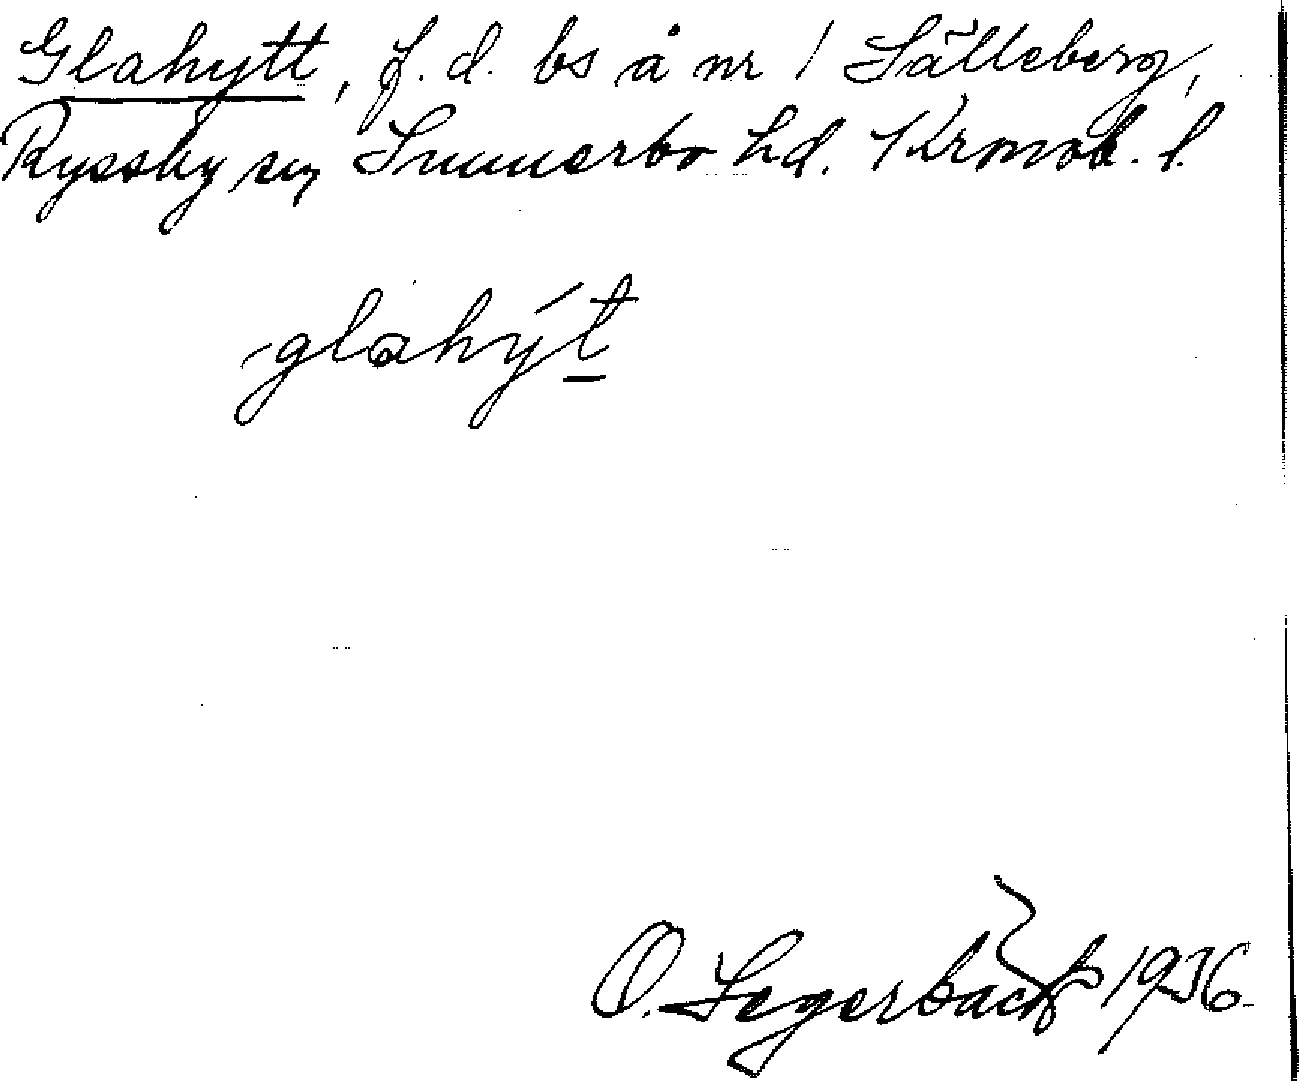 Glahytt, f. d. bs å nr 1 Sälleberg,
Ryssby sn, Sunnerbo hd. Kronob. l.
glahýt
O. Segerbäck 1936